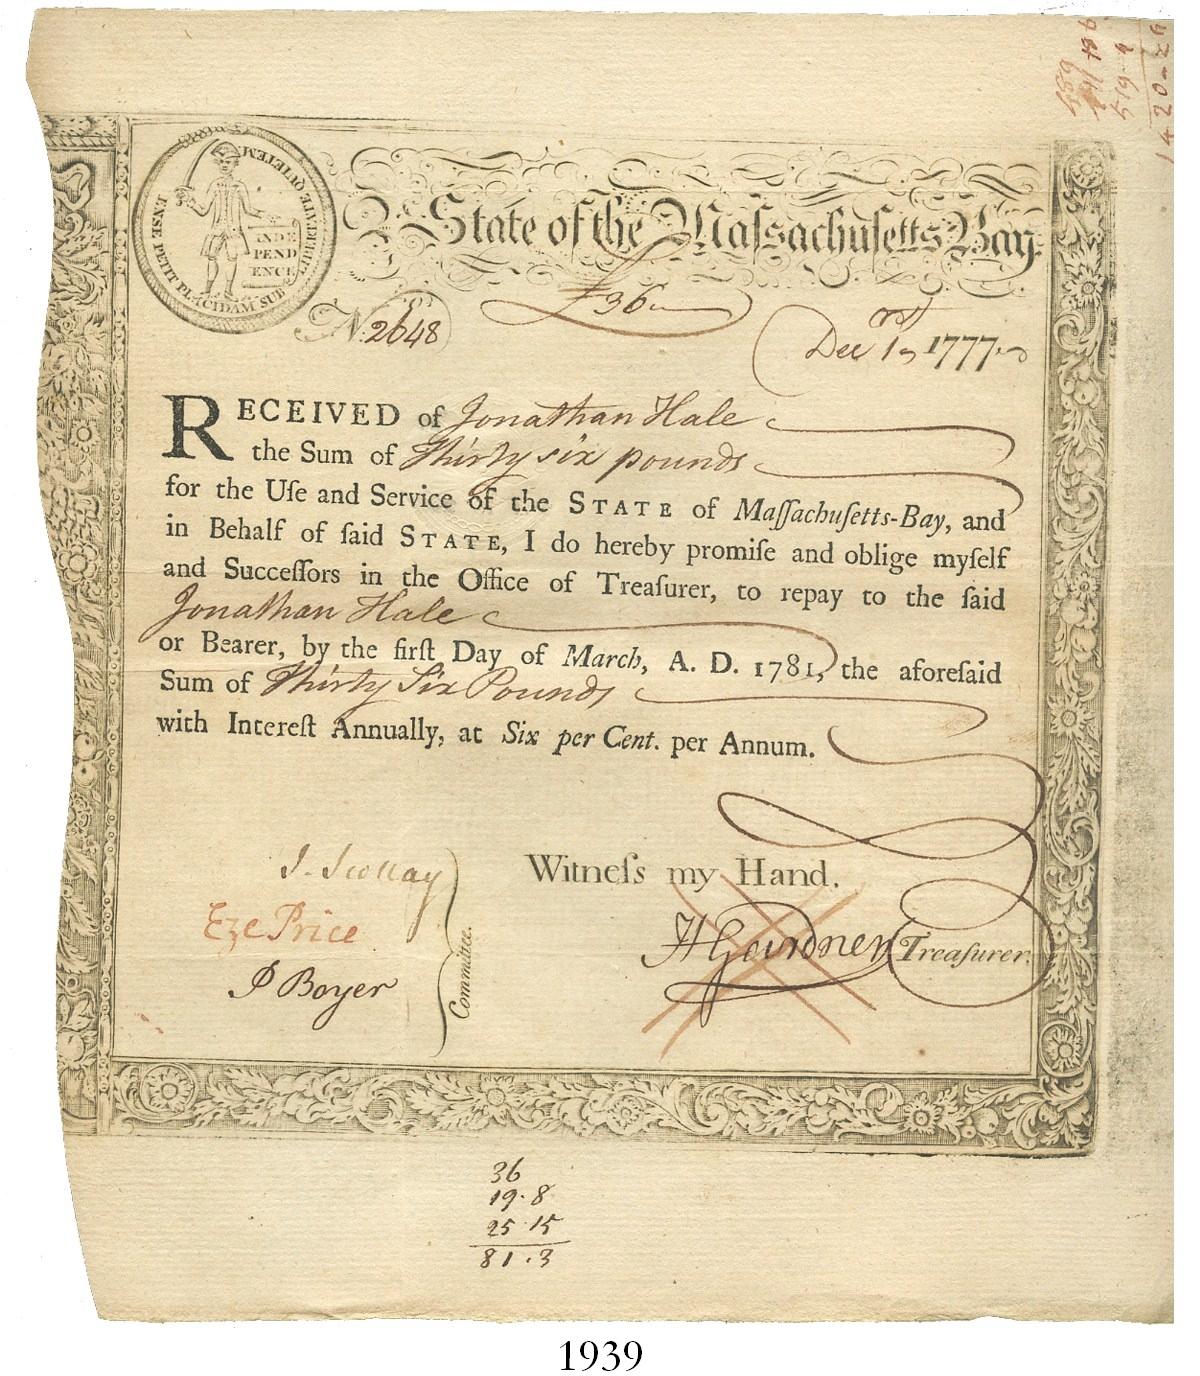 ENSE PETIT PLACIDAM SUB LIBERTATE QUIETEM
INDE
PEND
ENCE
State of the Maſsachuſetts Bay.
£36
No. 2648
Decr 1st 1777.
RECEIVED of Jonathan Hale
the Sum of Thirty six pounds
for the Uſe and Service of the STATE of Maſſachuſetts-Bay, and
in Behalf of ſaid STATE, I do hereby promiſe and oblige myſelf
and Succeſſors in the Office of Treaſurer, to repay to the ſaid
Jonathan Hale
or Bearer, by the firſt Day of March, A. D. 1781, the aforeſaid
Sum of Thirty Six Pounds
with Intereſt Annually, at Six per Cent. per Annum.
Witneſs my Hand.
J. Scollay
Eze Price
P Boyer
Committee.
HGardner Treaſurer.
36
19.8
25.15
81.3
1939